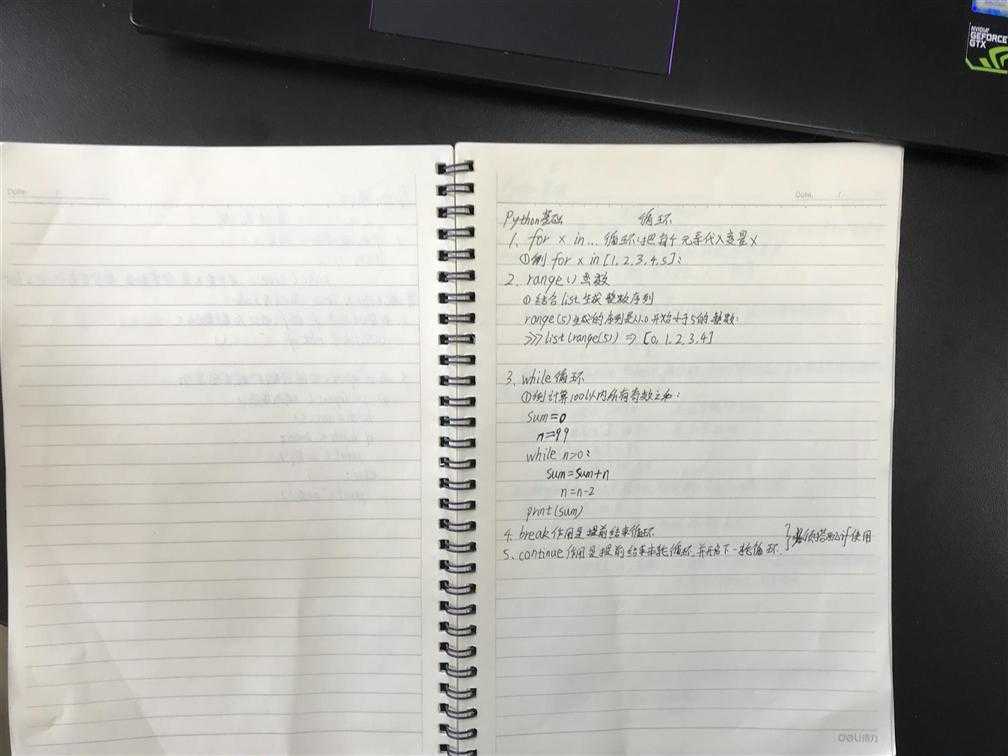 NVIDIA
GEFORCE
GTX
Date.
Date.
Python基础 循环
1、for x in... 循环:把每个元素代入变量x
①例 for x in [1,2,3,4,5]:
2、range()函数
①结合list生成整数序列
range(5)生成的序列是从0开始小于5的整数:
>>>list(range(5)) ⇒ [0,1,2,3,4]
3、while循环
①例计算100以内所有奇数之和:
sum=0
n=99
while n>0:
sum=sum+n
n=n-2
print(sum)
4、break作用是提前结束循环.
5、continue作用是提前结束本轮循环,并开始下一轮循环. }必须搭配if使用
deli得力